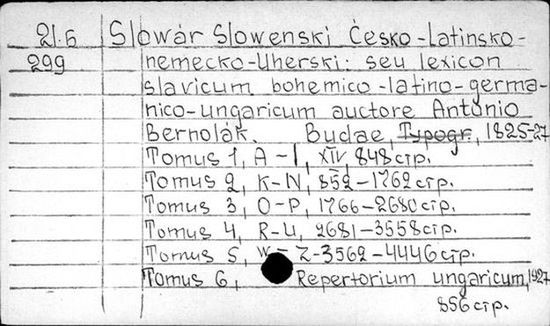 21.6 Slowár Slowenski Česko-Latinsko-
299 nemecko-Uherski: seu lexicon
slavicum bohemico-latino-germa-
nico-ungaricum auctore Antonio
Bernolák. Budae, Typogr, 1825-27
Tomus 1, A-I, XIV, 848 стр.
Tomus 2, K-N, 852-1762 стр.
Tomus 3, O-P, 1766-2680 стр.
Tomus 4, R-U, 2681-3558 стр.
Tomus 5, W-Z-3562-4446 стр.
Tomus 6, Repertorium ungaricum, 1927
856 стр.